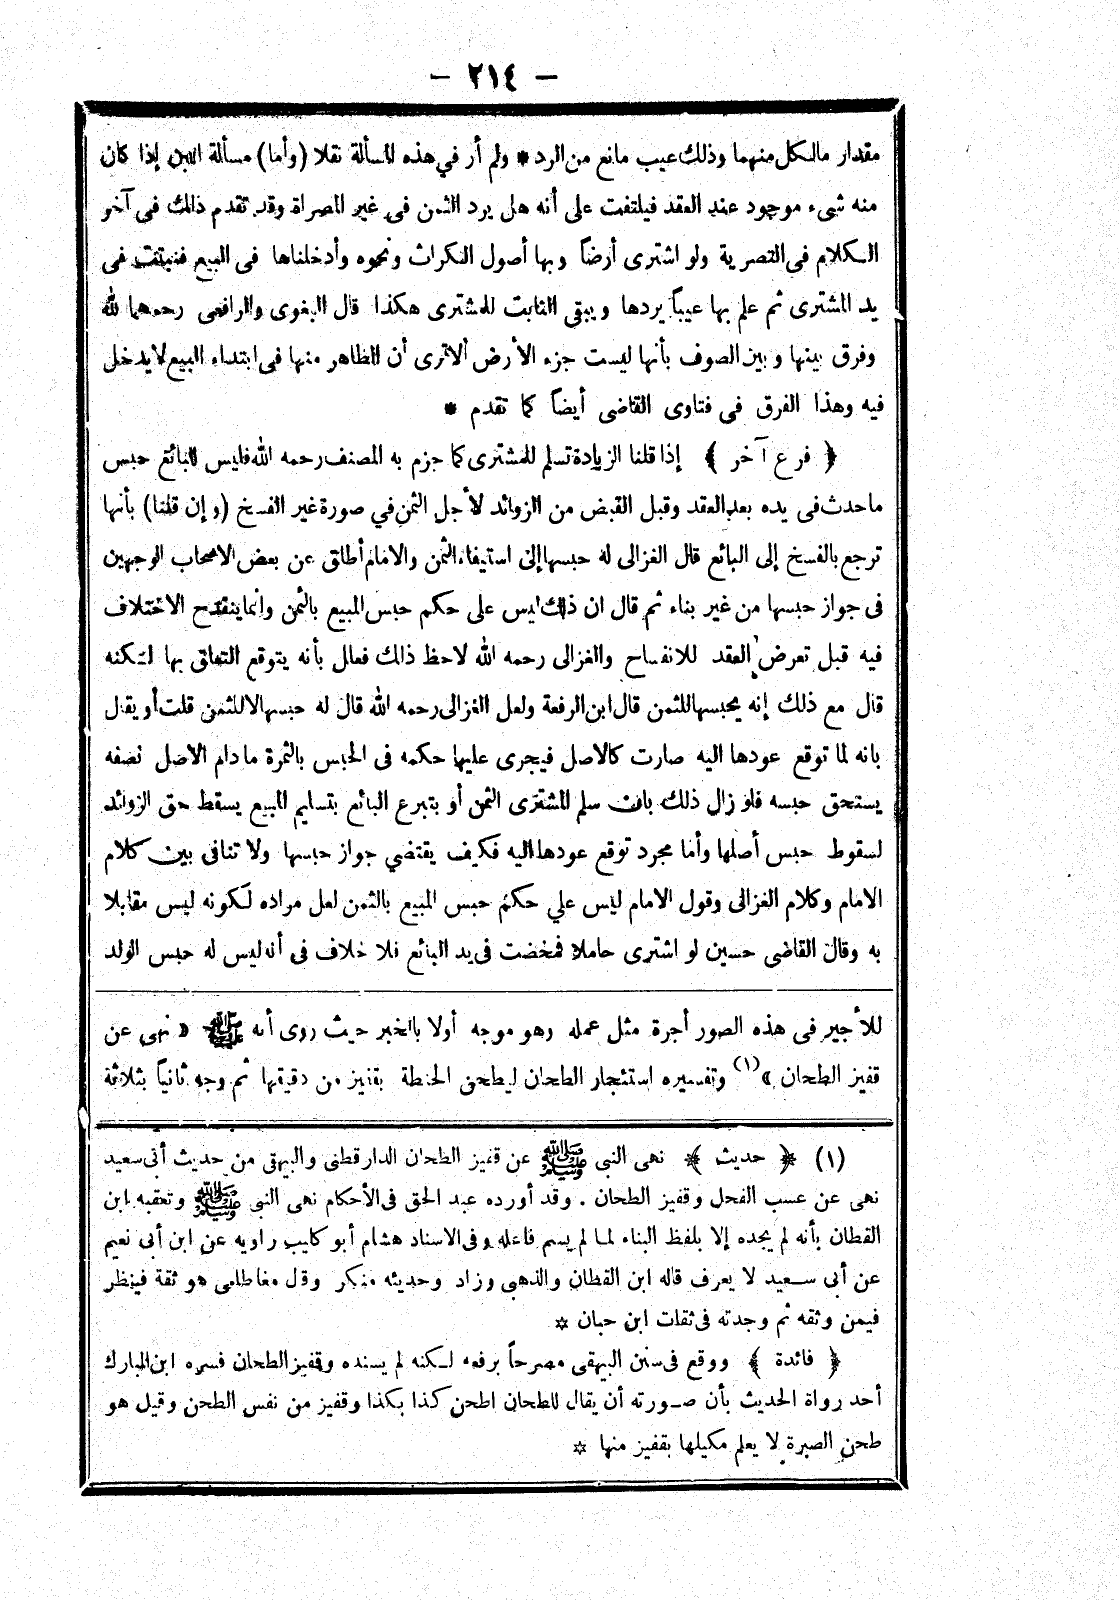 — ٢١٤ —
مقدار مالكل منهما وذلك عيب مانع من الرد * ولم أر في هذه المسألة نقلا (وأما) مسألة اللبن إذا كان
منه شىء موجود عند العقد فيلتفت على أنه هل يرد الثمن فى غير المصراة وقد تقدم ذلك فى آخر
الكلام فى التصرية ولو اشترى أرضاً وبها أصول الكراث ونحوه وأدخلناها فى البيع فنبتت فى
يد المشترى ثم علم بها عيباً يردها ويبقى النابت للمشترى هكذا قال البغوى والرافعى رحمهما الله
وفرق بينها وبين الصوف بأنها ليست جزء الأرض ألا ترى أن الظاهر منها فى ابتداء البيع لا يدخل
فيه وهذا الفرق فى فتاوى القاضى أيضاً كما تقدم *
﴿ فرع آخر ﴾ إذا قلنا الزيادة تسلم للمشترى كما جزم به المصنف رحمه الله فليس للبائع حبس
ما حدث فى يده بعد العقد وقبل القبض من الزوائد لأجل الثمن في صورة غير الفسخ (وإن قلنا) بأنها
ترجع بالفسخ إلى البائع قال الغزالى له حبسها إلى استيفاء الثمن والامام أطلق عن بعض الاصحاب الوجهين
فى جواز حبسها من غير بناء ثم قال ان ذلك ليس على حكم حبس المبيع بالثمن وانما ينقدح الاختلاف
فيه قبل تعرض العقد للانفساخ والغزالى رحمه الله لاحظ ذلك فعال بأنه يتوقع التعلق بها لكنه
قال مع ذلك إنه يحبسها للثمن قال ابن الرفعة ولعل الغزالى رحمه الله قال له حبسها لا للثمن قلت أو يقال
بانه لما توقع عودها اليه صارت كالاصل فيجرى عليها حكمه فى الحبس بالثمرة مادام الاصل نضفه
يستحق حبسه فلو زال ذلك بان سلم المشترى الثمن أو بتبرع البائع بتسليم المبيع يسقط حق الزوائد
لسقوط حبس أصلها وأما مجرد توقع عودها اليه فكيف يقتضي جواز حبسها ولا تنافى بين كلام
الامام وكلام الغزالى وقول الامام ليس علي حكم حبس المبيع بالثمن لعل مراده لكونه ليس مقابلا
به وقال القاضى حسين لو اشترى حاملا فمخضت فى يد البائع فلا خلاف فى أنه ليس له حبس الولد
للأجير فى هذه الصور أجرة مثل عمله وهو موجه أولا بالخبر حيث روى أنه ﷺ « نهى عن
قفيز الطحان » (١) وتفسيره استئجار الطحان ليطحن الحنطة بقفيز من دقيقها ثم وجه ثانياً بثلاثة
(١) ﴿ حديث ﴾ نهى النبى ﷺ عن قفيز الطحان الدارقطنى والبيهقى من حديث أبى سعيد
نهى عن عسب الفحل وقفيز الطحان . وقد أورده عبد الحق فى الأحكام نهى النبى ﷺ وتعقبه ابن
القطان بأنه لم يجده إلا بلفظ البناء لما لم يسم فاعله وفى الاسناد هشام أبو كليب راويه عن ابن أبى نعيم
عن أبى سعيد لا يعرف قاله ابن القطان والذهبى وزاد وحديثه منكر وقل مغاطلى هو ثقة فينظر
فيمن وثقه ثم وجدته فى ثقات ابن حبان *
﴿ فائدة ﴾ ووقع فى سنن البيهقى مصرحاً برفعه لكنه لم يسنده وقفيز الطحان فسره ابن المبارك
أحد رواة الحديث بأن صورته أن يقال للطحان اطحن كذا بكذا وقفيز من نفس الطحن وقيل هو
طحن الصبرة لا يعلم مكيلها بقفيز منها *